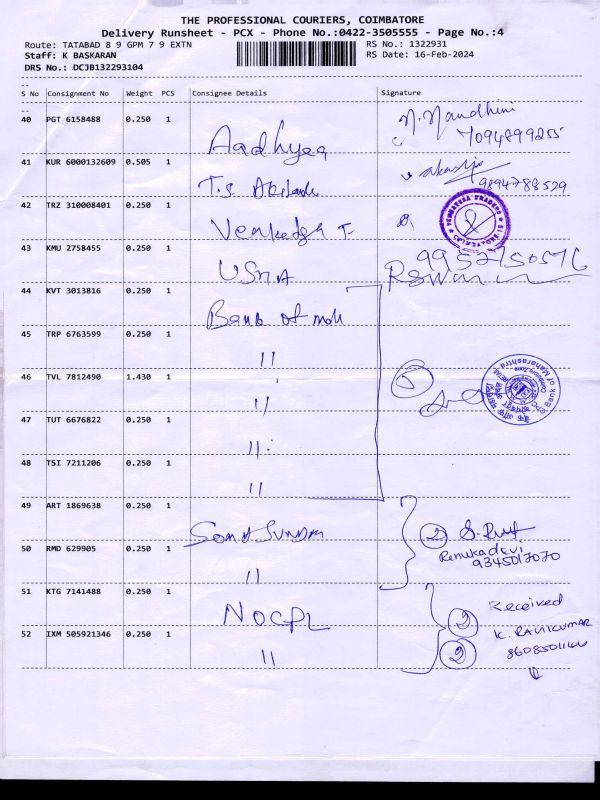 THE PROFESSIONAL COURIERS, COIMBATORE
Delivery Runsheet - PCX - Phone No.:0422-3505555 - Page No.:4
Route: TATABAD 8 9 GPM 7 9 EXTN
RS No.: 1322931
Staff: K BASKARAN
RS Date: 16-Feb-2024
DRS No.: DCJB132293104
S No Consignment No Weight PCS Consignee Details Signature
40 PGT 6158488 0.250 1 Aadhyea N. Nandhini
7094899255
41 KUR 6000132609 0.505 1 T.S
9894788529
42 TRZ 310008401 0.250 1 Venkedsh T
43 KMU 2758455 0.250 1 USHA 9952750576
44 KVT 3013816 0.250 1 Bank of mah
45 TRP 6763599 0.250 1 "
46 TVL 7812490 1.430 1 " 5
Bank of Maharashtra
47 TUT 6676822 0.250 1 "
48 TSI 7211206 0.250 1 "
49 ART 1869638 0.250 1 2
50 RMD 629905 0.250 1 " Renukadevi
9345017070
51 KTG 7141488 0.250 1 NOCPL 2 Received
K. RAVIKUMAR
52 IXM 505921346 0.250 1 " 2